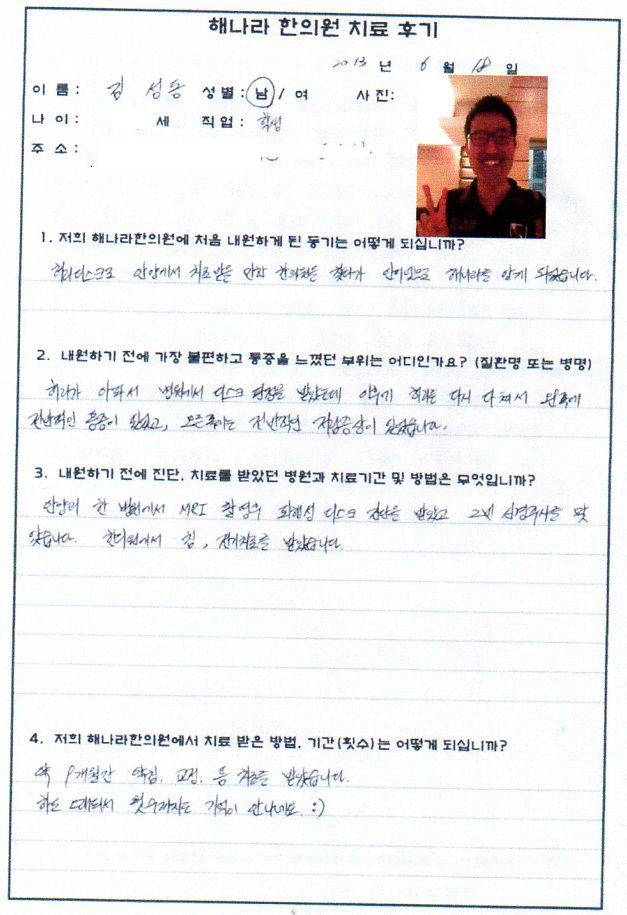 해나라 한의원 치료 후기
2013 년 6 월 18 일
이 름 : 김 성동 성별 : 남 / 여 사진:
나 이 : 세 직업 : 학생
주 소 :
1. 저희 해나라한의원에 처음 내원하게 된 동기는 어떻게 되십니까?
허리디스크로 안양에서 치료받을 만한 한의원을 찾다가 해나라를 알게 되었습니다.
2. 내원하기 전에 가장 불편하고 통증을 느꼈던 부위는 어디인가요? (질환명 또는 병명)
허리가 아파서 병원에서 디스크 판정을 받았는데 허리를 다시 다쳐서 왼쪽에
전반적인 통증이 있었고, 오른쪽에는 전반적인 저림증상이 있었습니다.
3. 내원하기 전에 진단, 치료를 받았던 병원과 치료기간 및 방법은 무엇입니까?
안양의 한 병원에서 MRI 촬영후 퇴행성 디스크 진단을 받았고 2번 신경주사를 맞
았습니다. 한의원에서 침, 전기치료를 받았습니다.
4. 저희 해나라한의원에서 치료 받은 방법, 기간(횟수)는 어떻게 되십니까?
약 9개월간 약침, 교정, 등 치료를 받았습니다.
하도 오래되서 횟수까지는 기억이 안나네요. :)